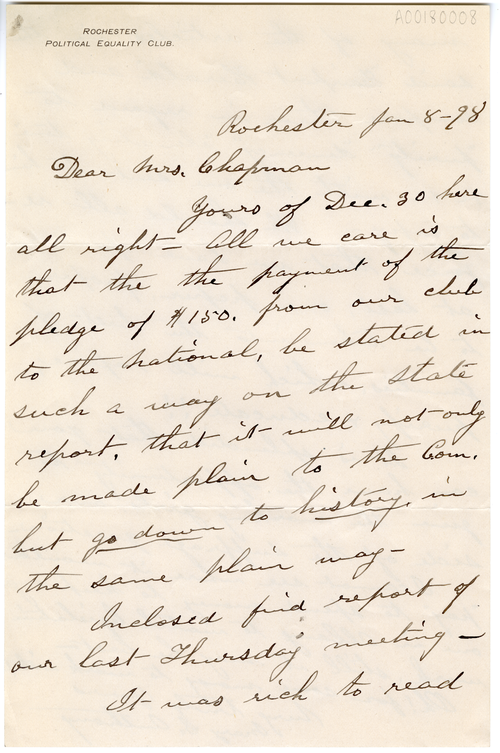 A00180008
ROCHESTER
POLITICAL EQUALITY CLUB.
Rochester Jan 8-98
Dear Mrs. Chapman
Yours of Dec. 30 here
all right - All we care is
that the the payment of the
pledge of $150. from our club
to the National, be stated in
such a way on the state
report, that it will not only
be made plain to the Com.
but go down to history, in
the same plain way-
Inclosed find report of
our last Thursday meeting -
It was rich to read